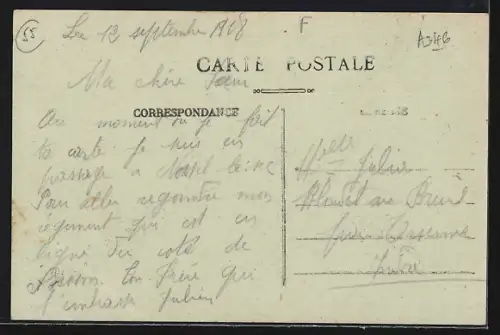 55
Le 12 septembre 1918
F
A346
CARTE POSTALE
Ma chère Sœur
CORRESPONDANCE
Au moment où je fait
ta carte je suis en
passage a Noisy le Sec
Pour aller rejoindre mon
régiment qui est en
ligne du coté de
Ton frère qui
t'embrasse Julien
Melle Julia
au Breuil
par